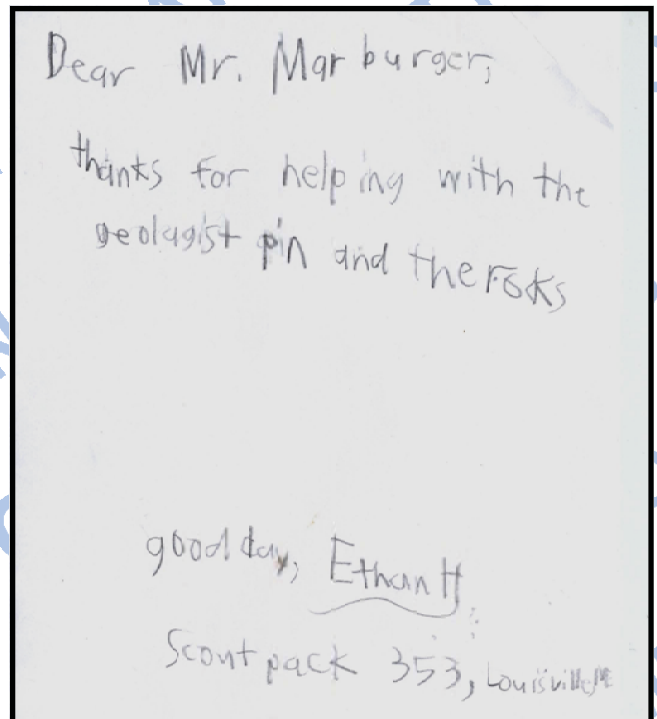 Dear Mr. Marburger,
thanks for helping with the
geolagist pin and the roks
good day, Ethan H
Scout pack 353, Louisville,